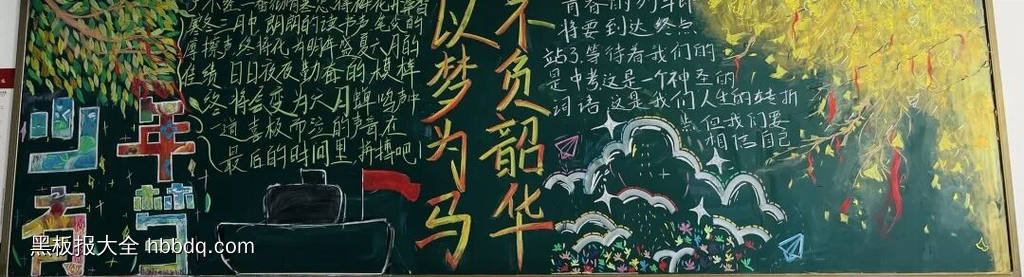 少年
有
以梦为马
不负韶华
摩擦声终将化为明年盛夏六月的
佳绩 日日夜夜勤奋的模样
终将会变为六月蝉鸣声中
一词喜极而泣的声音在
最后的时间里拼搏吧
青春的列车即
将要到达终点
站了等待着我们的
是中考这是一个神圣的
词语这是我们人生的转折
点但我们要
相信自己
黑板报大全 hbbdq.com